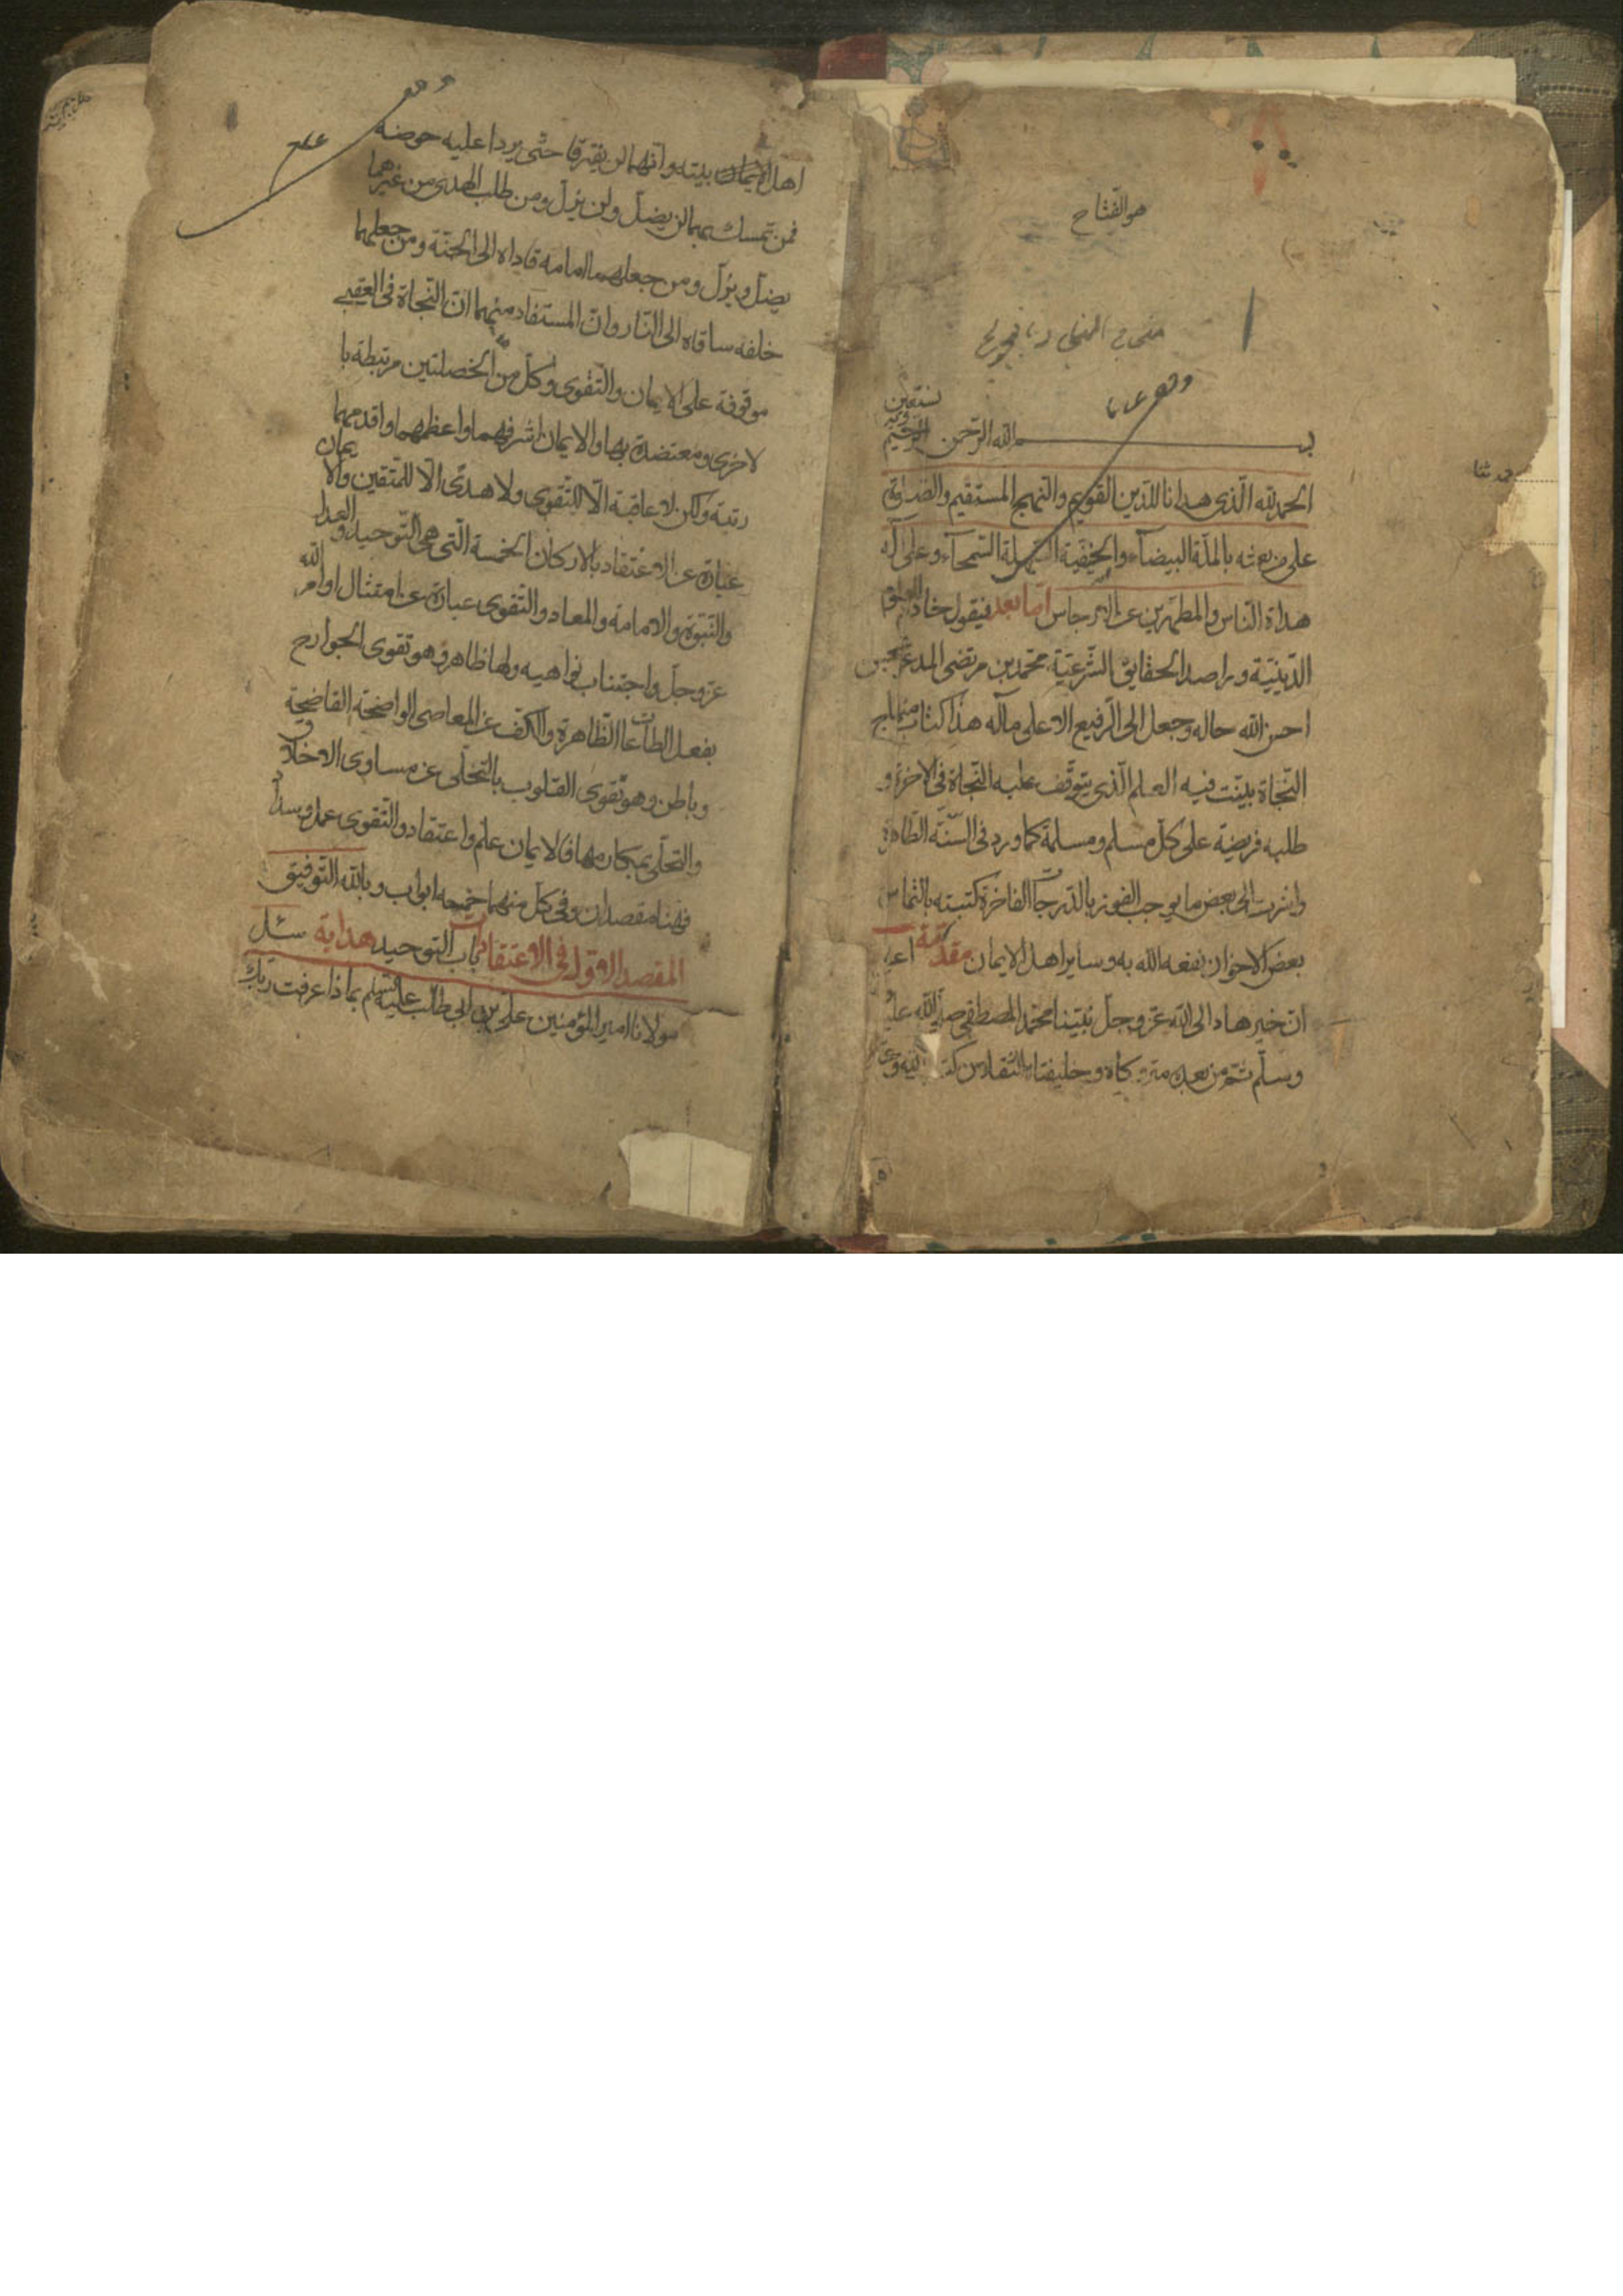 هو الفتاح
وقف
نستعين
بسم الله الرحمن الرحيم وبه
الحمد لله الّذى هدانا للدّين القويم والنهج المستقيم والصلوة
على من بعثه بالملّة البيضآء والحنيفيّة السّهلة السّمحآء وعلى آله
هداة النّاس والمطهّرين عن الارجاس امّا بعد فيقول خادم العلوم
الدّينيّة وراصد الحقايق الشّرعيّة محمّد بن مرتضى المدعو بمحسن
احسن الله حاله وجعل الى الرّفيع الاعلى مآله هذا كتاب منهاج
النّجاة بيّنت فيه العلم الّذى يتوقّف عليه النّجاة فى الاخرة و
طلبه فريضة على كلّ مسلم ومسلمة كما ورد فى السّنّة الطّاهرة
واشرت الى بعض ما يوجب الفوز بالدّرجات الفاخرة كتبته بالتماس
بعض الاخوان نفعه الله به وساير اهل الايمان مقدّمة اعلم
انّ خير هاد الى الله عزّ وجلّ نبيّنا محمّد المصطفى صلّى الله عليه
وسلّم ثمّ من بعده متروكاه وخليفتاه الثقلان
وقف
اهل بيته وانّهما لن يفترقا حتّى يردا عليه حوضه
فمن تمسك بهما لن يضلّ ولن يزلّ ومن طلب الهدى من غيرهما
يضلّ ويزلّ ومن جعلهما امامه قاداه الى الجنّة ومن جعلهما
خلفه ساقاه الى النّار وانّ المستفاد منهما انّ النّجاة فى العقبى
موقوفة على الايمان والتّقوى وكلّ من الخصلتين مرتبطة با
لاخرى ومعتضدة بها والايمان اشرفهما واعظمهما واقدمهما
رتبة ولكن لا عاقبة الّا للتّقوى ولا هدى الّا للمتّقين والايمان
عبارة عن الاعتقاد بالاركان الخمسة الّتى هى التّوحيد والعدل
والنّبوّة والامامة والمعاد والتّقوى عبارة عن امتثال اوامر الله
عزّ وجلّ واجتناب نواهيه ولها ظاهر وهو تقوى الجوارح
بفعل الطاعات الظّاهرة والكفّ عن المعاصى الواضحة الفاضحة
وباطن وهو تقوى القلوب بالتخلّى عن مساوى الاخلاق
والتحلّى بمكارمها فالايمان علم واعتقاد والتّقوى عمل وسداد
فههنا مقصدان وفى كلّ منهما خمسه ابواب وبالله التّوفيق
المقصد الاوّل فى الاعتقادات باب التوحيد هداية سئل
مولانا امير المؤمنين علىّ بن ابى طالب عليه السّلم بماذا عرفت ربّك